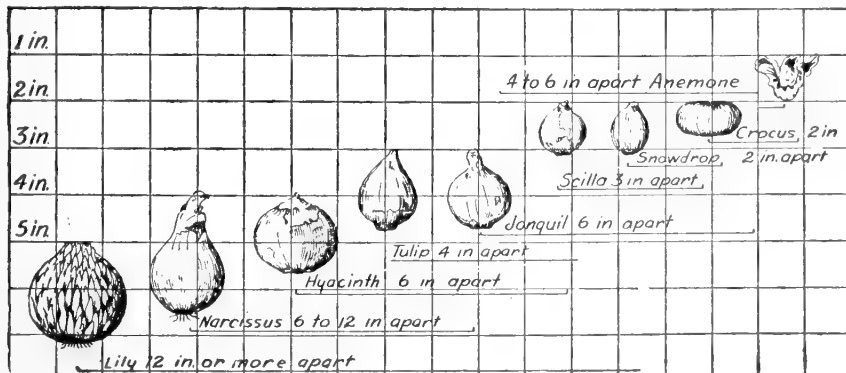 1 in.
4 to 6 in apart Anemone
2 in.
Crocus, 2 in
3 in.
Snowdrop, 2 in. apart
4 in.
Scilla 3 in apart
5 in.
Jonquil 6 in apart
Tulip 4 in apart
Hyacinth 6 in apart
Narcissus 6 to 12 in apart
Lily 12 in. or more apart